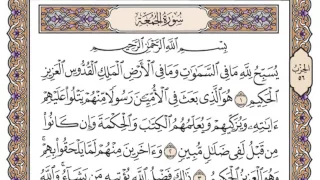 سُورَةُ الجُمُعَةِ
بِسْمِ اللَّهِ الرَّحْمَٰنِ الرَّحِيمِ
يُسَبِّحُ لِلَّهِ مَا فِي السَّمَٰوَٰتِ وَمَا فِي الْأَرْضِ الْمَلِكِ الْقُدُّوسِ الْعَزِيزِ
الْحَكِيمِ ١ هُوَ الَّذِي بَعَثَ فِي الْأُمِّيِّـۧنَ رَسُولًا مِّنْهُمْ يَتْلُوا۟ عَلَيْهِمْ
ءَايَٰتِهِۦ وَيُزَكِّيهِمْ وَيُعَلِّمُهُمُ الْكِتَٰبَ وَالْحِكْمَةَ وَإِن كَانُوا۟
مِن قَبْلُ لَفِي ضَلَٰلٍ مُّبِينٍ ٢ وَءَاخَرِينَ مِنْهُمْ لَمَّا يَلْحَقُوا۟ بِهِمْ
وَهُوَ الْعَزِيزُ الْحَكِيمُ ٣ ذَٰلِكَ فَضْلُ اللَّهِ يُؤْتِيهِ مَن يَشَآءُ وَاللَّهُ
الحزب
٥٦